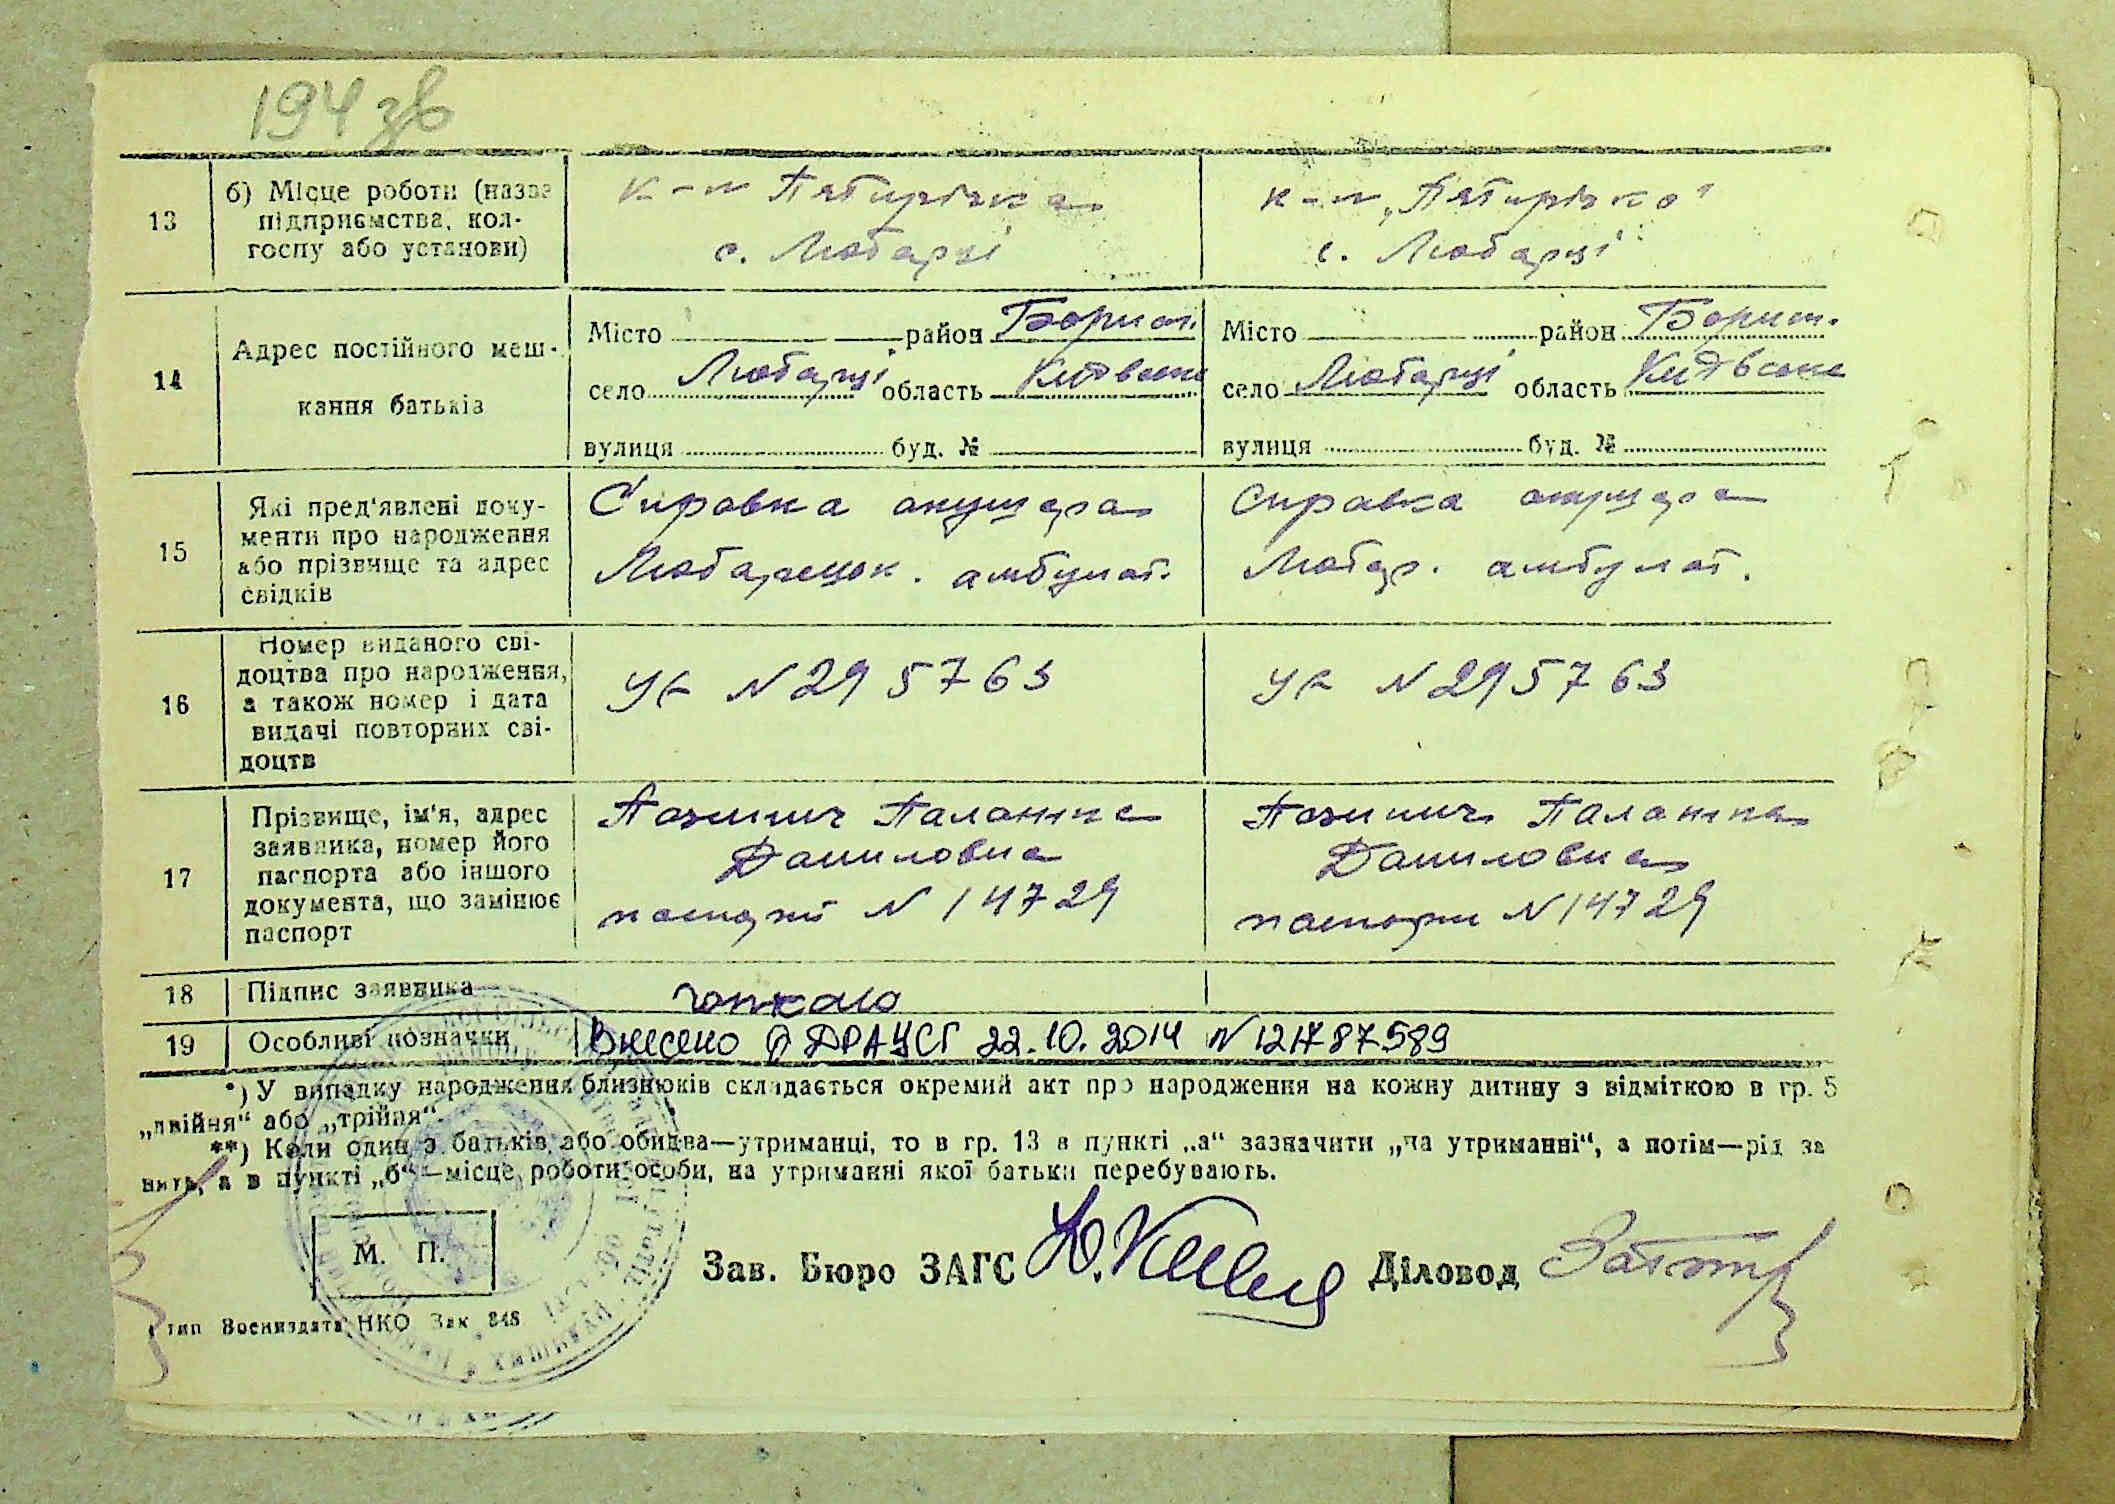 194 зв
13
б) Місце роботи (назва
підприємства, кол-
госпу або установи)
к-п Пятирічка
с. Любарці
к-п „Пятирічка"
с. Любарці
14
Адрес постійного меш-
кання батьків
Місто район Борисп.
село Любарці область Київська
вулиця буд. №
Місто район Борисп.
село Любарці область Київська
вулиця буд. №
15
Які пред'явлені доку-
менти про народження
або прізвище та адрес
свідків
Справка акушера
Любарецьк. амбулат.
Справка акушера
Любар. амбулат.
16
Номер виданого сві-
доцтва про народження,
а також номер і дата
видачі повторних сві-
доцтв
N 295763
N 295763
17
Прізвище, ім'я, адрес
заявника, номер його
паспорта або іншого
документа, що замінює
паспорт
Палажка
Даниловна
паспорт N 14729
Палажка
Даниловна
паспорт N 14729
18
Підпис заявника
19
Особливі позначки
Внесено в ДРАЦСГ 22.10.2014 N 121787589
*) У випадку народження близнюків складається окремий акт про народження на кожну дитину з відміткою в гр. 5
„двійня" або „трійня".
**) Коли один з батьків або обидва—утриманці, то в гр. 13 в пункті „а" зазначити „на утриманні", а потім—рід за
нять, а в пункті „б"—місце роботи особи, на утриманні якої батьки перебувають.
М. П.
Зав. Бюро ЗАГС
Діловод
тип Воениздата НКО Зак 848